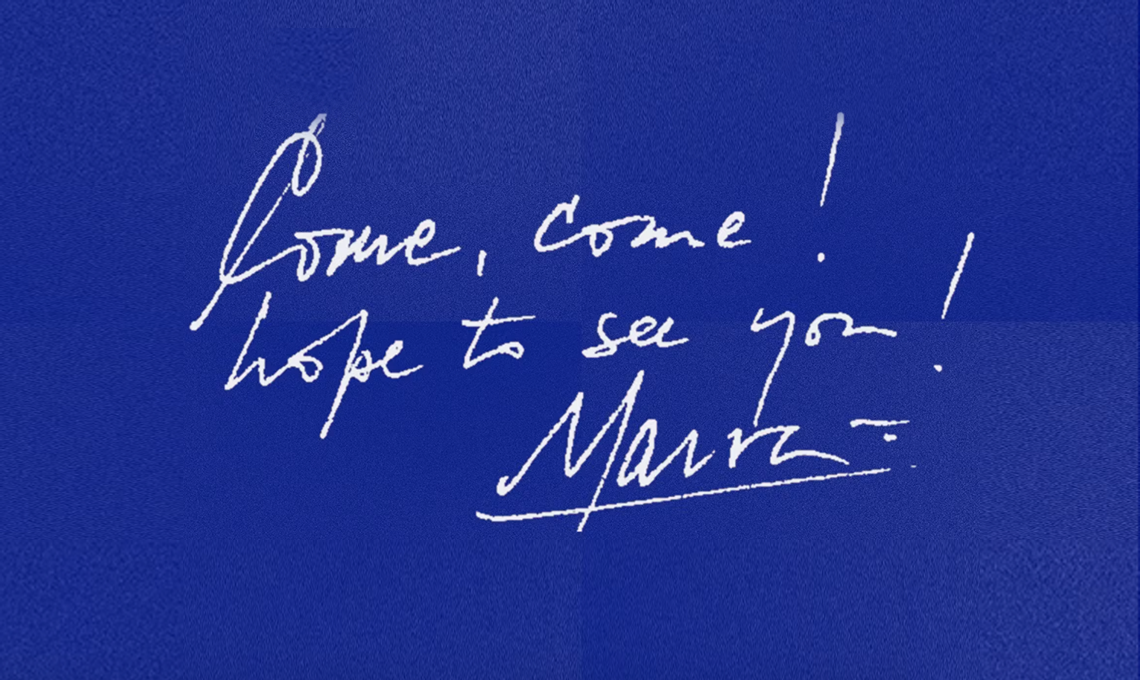 Come, come!
hope to see you!
Marva